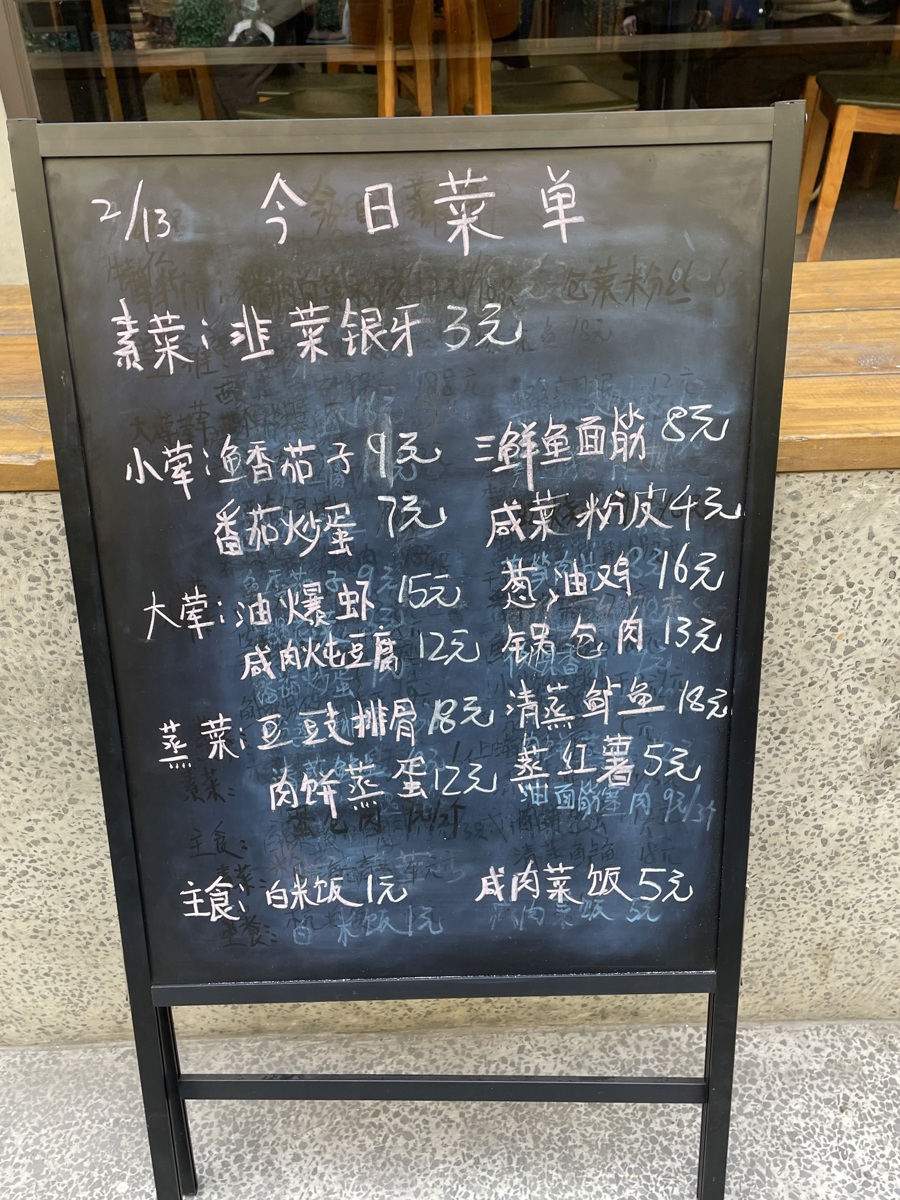 2/13 今日菜单
素菜:韭菜银牙 3元
小荤:鱼香茄子 9元 三鲜鱼面筋 8元
番茄炒蛋 7元 咸菜粉皮 4元
大荤:油爆虾 15元 葱油鸡 16元
咸肉炖豆腐 12元 锅包肉 13元
蒸菜:豆豉排骨 18元 清蒸鲈鱼 18元
肉饼蒸蛋 12元 蒸红薯 5元
主食:白米饭 1元 咸肉菜饭 5元